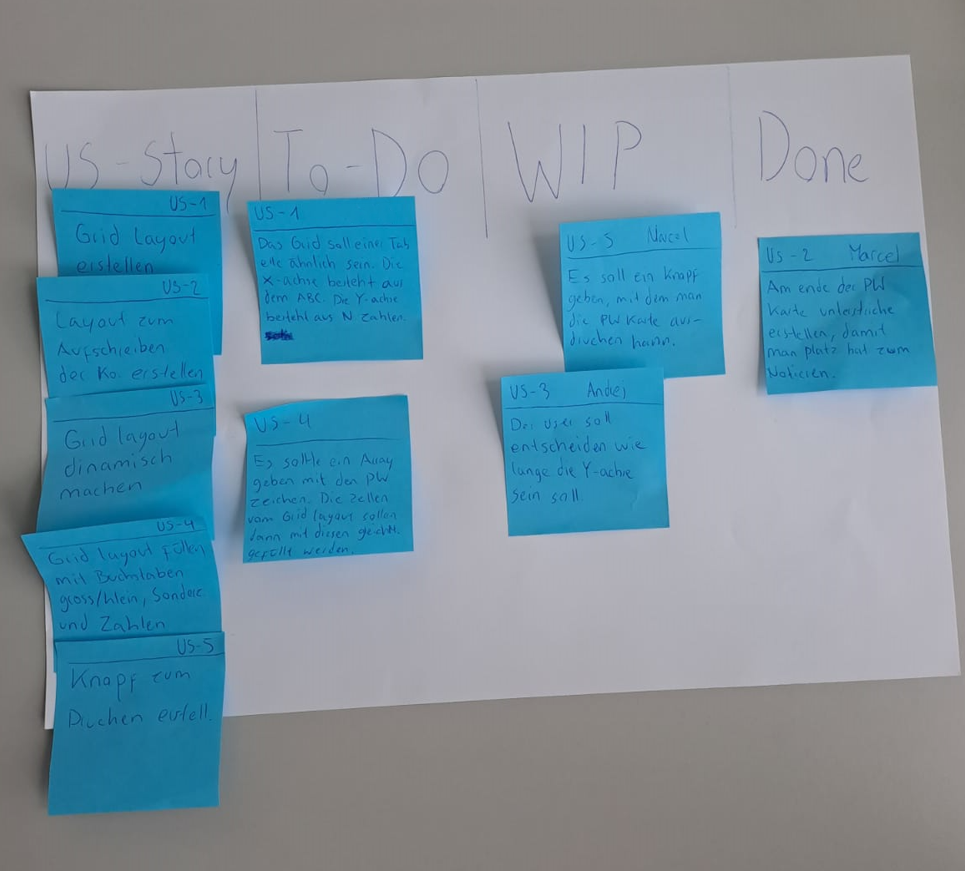 US-Story
To-Do
WIP
Done
US-1
Grid Layout
erstellen
US-2
Layout zum
Aufschreiben
der Ko. erstellen
US-3
Grid layout
dinamisch
machen
US-4
Grid layout füllen
mit Buchstaben
gross/klein, Sonderz.
und Zahlen
US-5
Knopf zum
Drucken erstell.
US-1
Das Grid soll einer Tab
elle ähnlich sein. Die
X-achse besteht aus
dem ABC. Die Y-achse
besteht aus N Zahlen
US-4
Es sollte ein Array
geben mit den PW
zeichen. Die Zellen
vom Grid layout sollen
dann mit diesen
gefüllt werden.
US-5 Marcel
Es soll ein Knopf
geben, mit dem man
die PW Karte aus-
drucken kann.
US-3 Andrej
Der User soll
entscheiden wie
lange die Y-achse
sein soll.
US-2 Marcel
Am ende der PW
Karte unterstriche
erstellen, damit
man platz hat zum
Notieren.